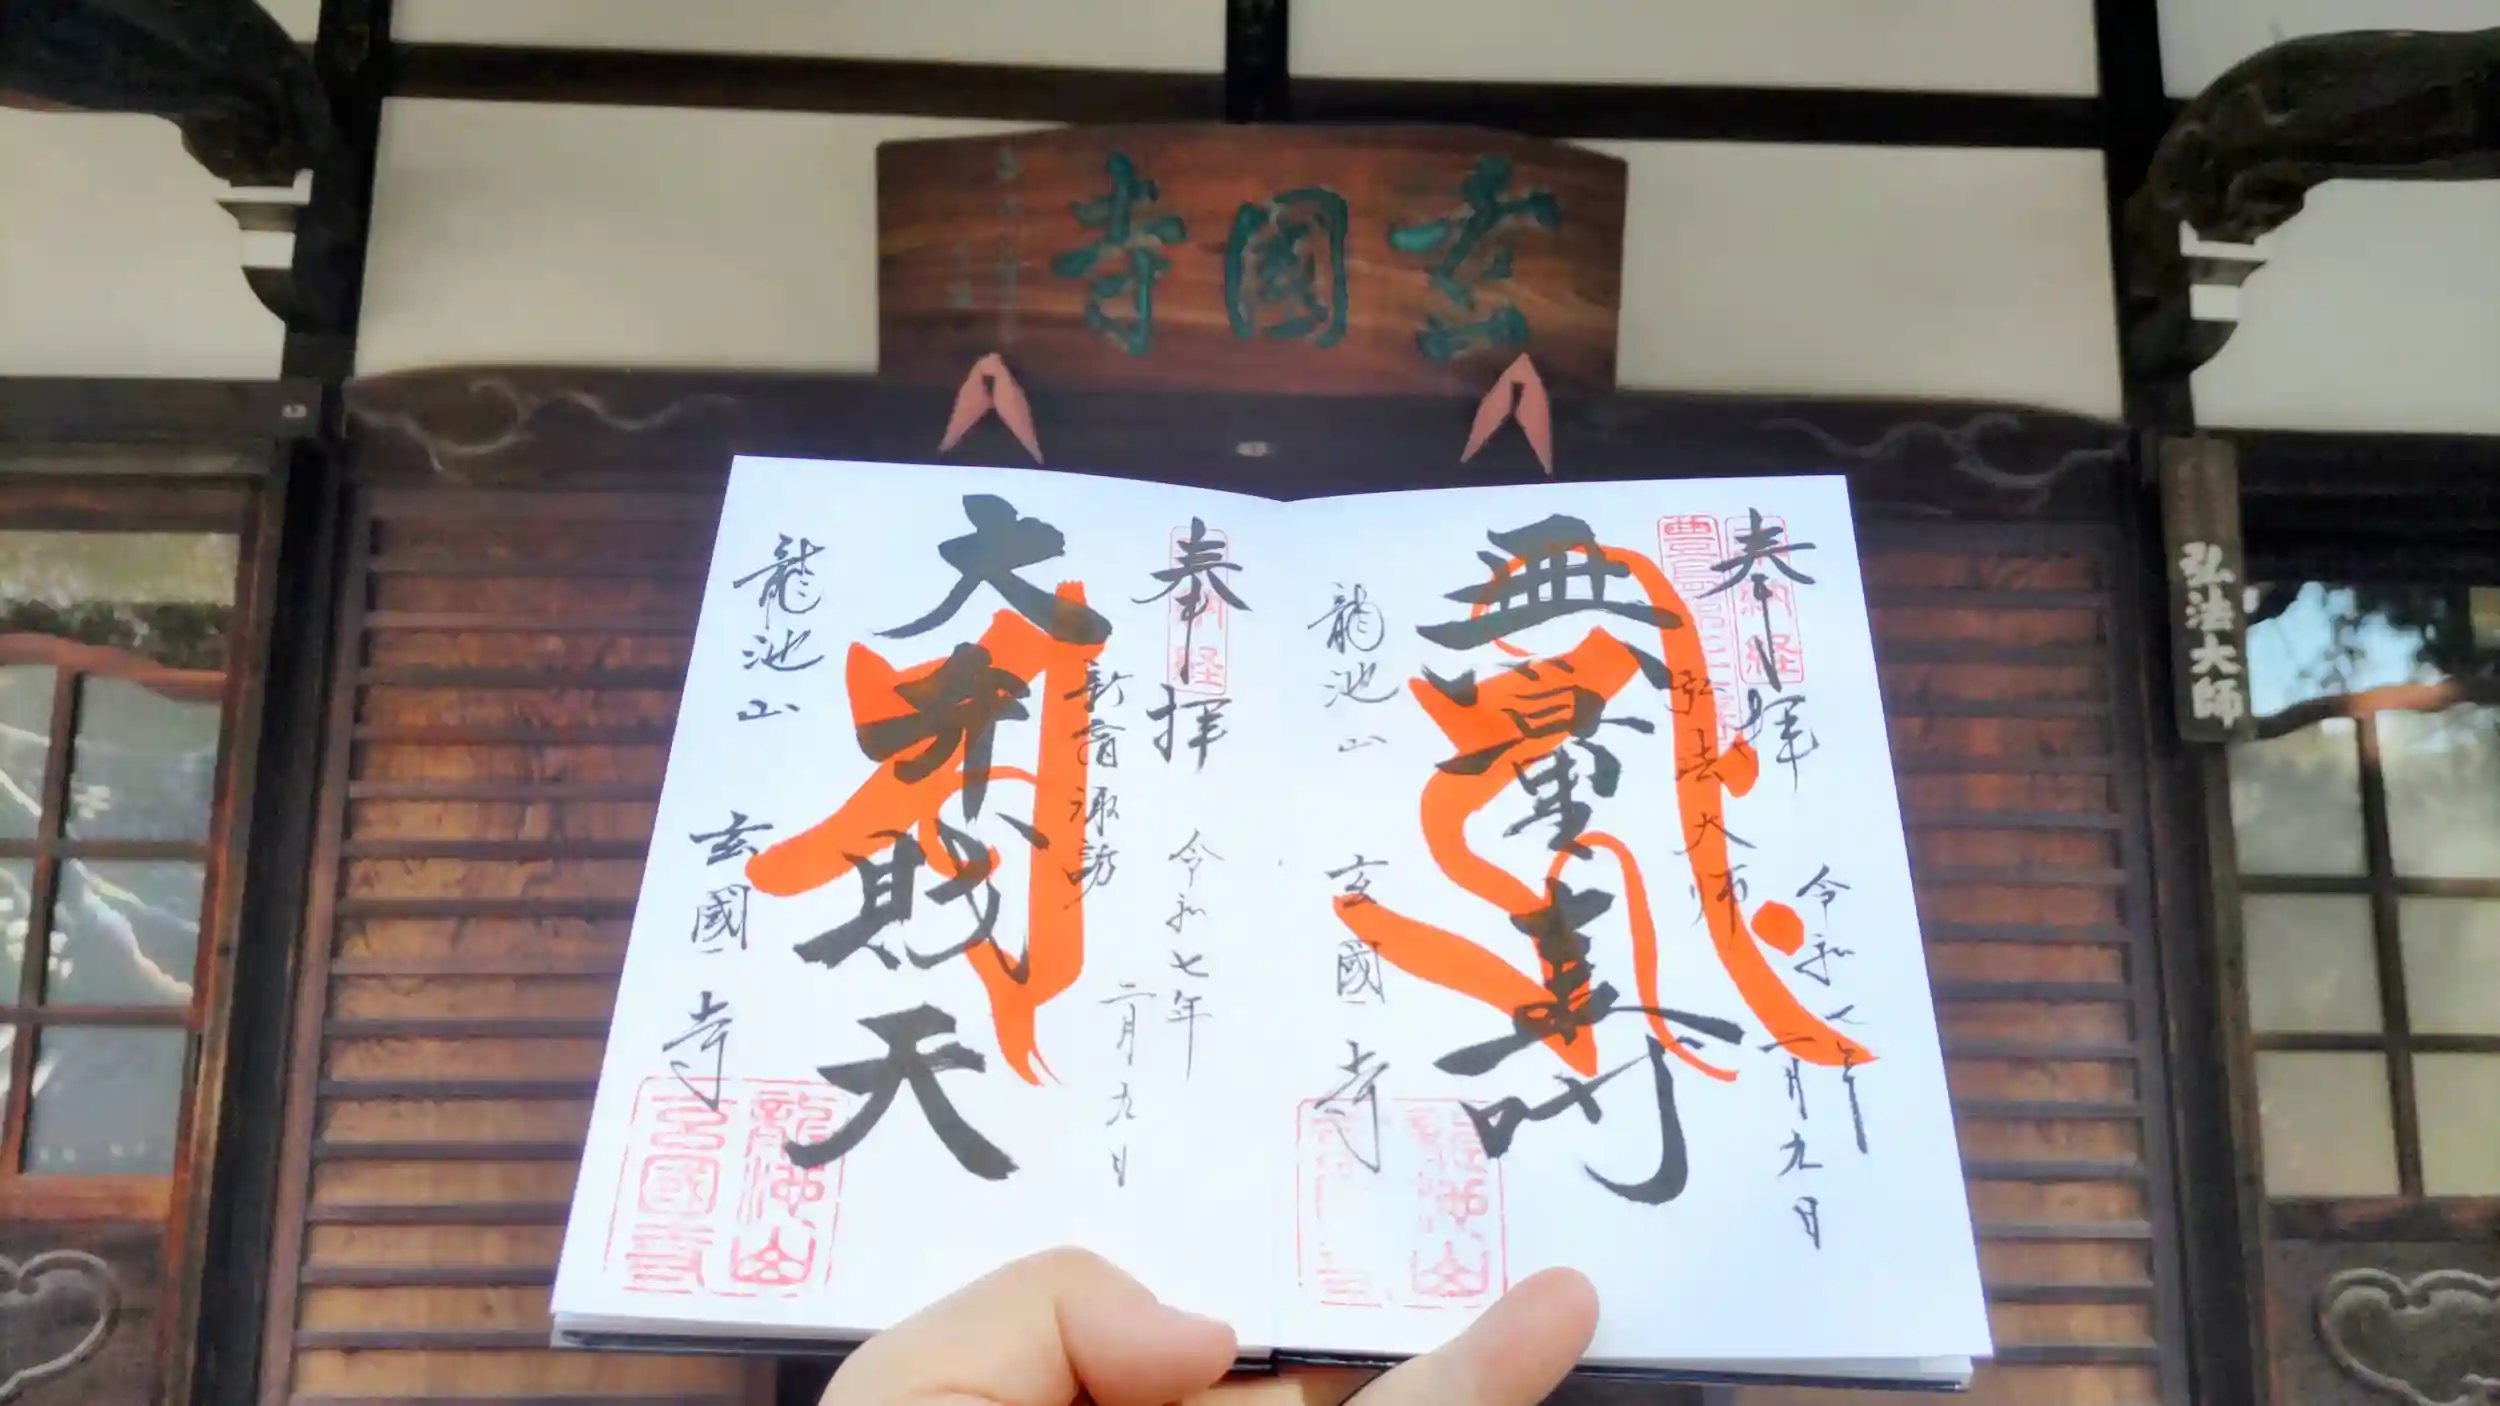 玄國寺
弘法大師
奉拝
納経
弘法大师
令和七年二月九日
無量寿
龍池山
玄國寺
龍池山
奉拝
納経
新宿諏訪
令和七年二月九日
大弁財天
龍池山
玄國寺
龍池山
玄國寺